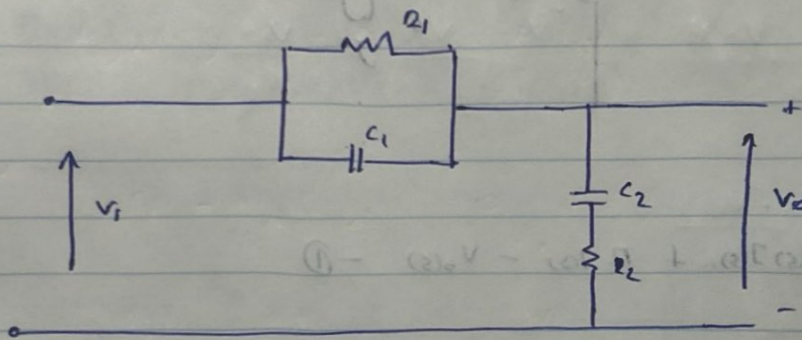 R₁
+
C₁
V₁
C₂
R₂
-